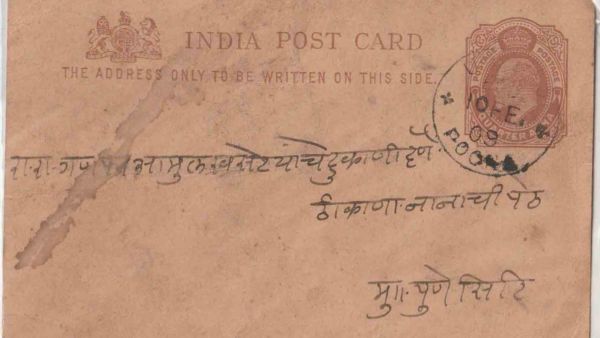 INDIA POST CARD
THE ADDRESS ONLY TO BE WRITTEN ON THIS SIDE.
POSTAGE
QUARTER ANNA
10 FE.
09
POONA
रा. रा. गणपत यांचे दुकाणी
ठीकाणा नानाची पेठ
मु॥ पुणे सिटि